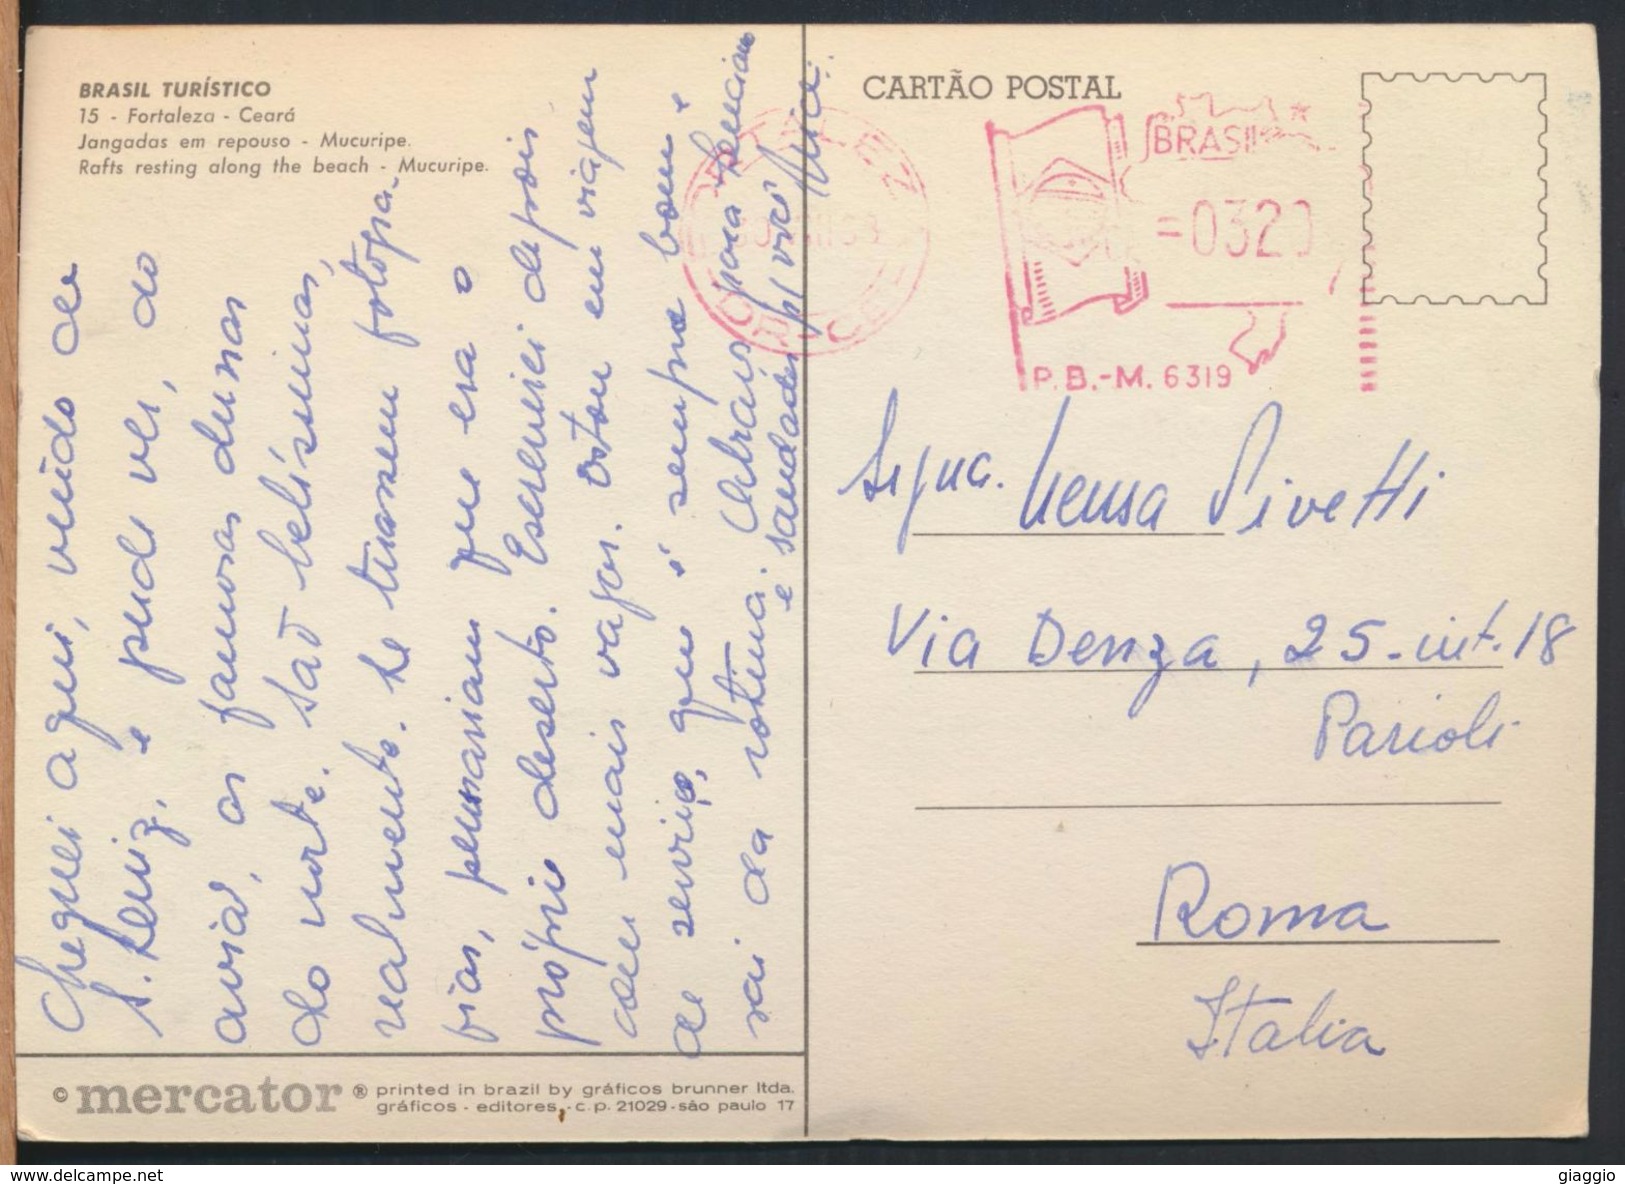 BRASIL TURÍSTICO
15 - Fortaleza - Ceará
Jangadas em repouso - Mucuripe.
Rafts resting along the beach - Mucuripe.
Cheguei aqui, vindo de
S. Luiz, e pude ver, do
avião, as famosas dunas
do norte. São belíssimas,
realmente. Se tirassem fotogra-
fias, pensariam que era o
próprio deserto. Escreverei depois
com mais vagar. Estou em viagem
de serviço, que é sempre bom e
sai da rotina. Abraços para
e saudades p/ você
CARTÃO POSTAL
BRASIL
=0320
P.B.-M. 6319
Signa. Neusa Pivetti
Via Denza, 25 - int. 18
Parioli
Roma
Italia
© mercator ® printed in brazil by gráficos brunner ltda.
gráficos - editores - c.p. 21029 - são paulo 17
giaggio